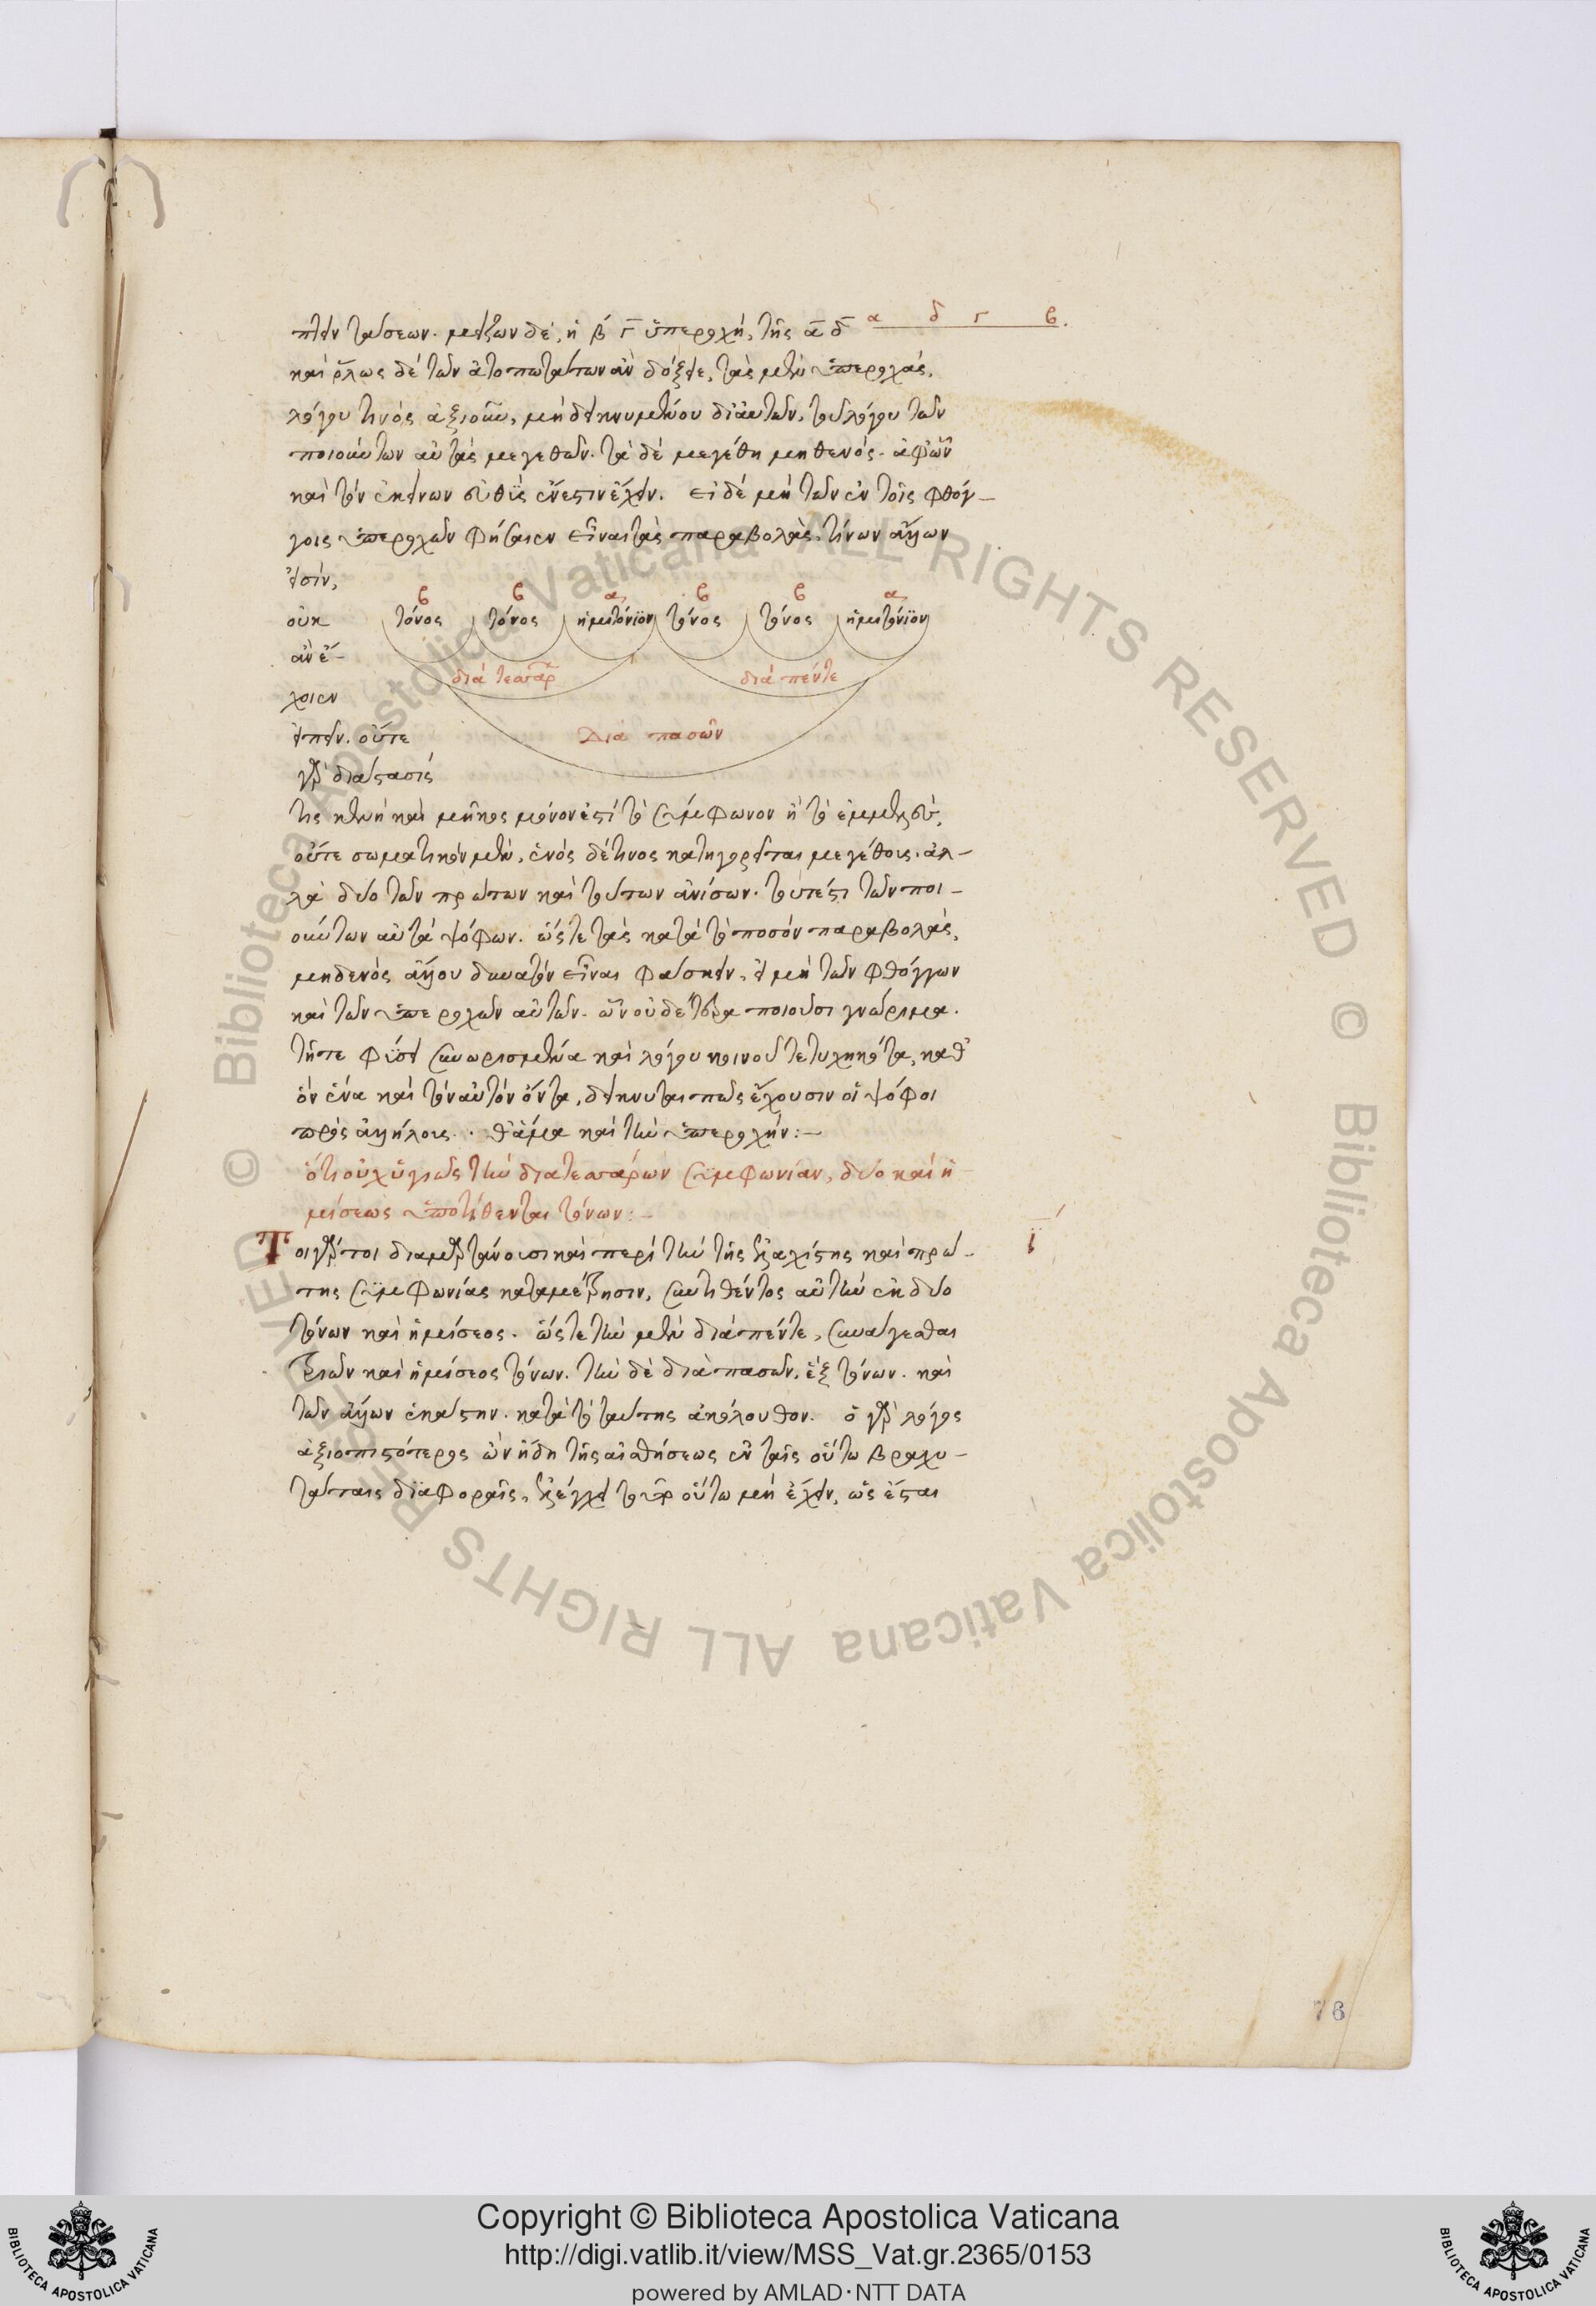 πλειν τάσεων. μείζων δέ, ἡ β γ ὑπεροχή, τῆς α δ α δ γ β.
καὶ ὅλως δὲ τῶν ἀτοπωτάτων ἂν δόξειε, τὰς μὲν ὑπεροχάς,
λόγου τινὸς ἀξιοῦν, μὴ δεικνυμένου δι' αὐτῶν, τοῦ λόγου τῶν
ποιούντων αὐτὰς μεγεθῶν. τὰ δὲ μεγέθη μηθενός. ἀφ' ὧν
καὶ τὸν ἐκείνων εὐθὺς ἔνεστιν ἔχειν. εἰ δὲ μὴ τῶν ἐν τοῖς φθόγ-
γοις ὑπεροχῶν φήσαιεν εἶναι τὰς παραβολάς, τίνων ἄλλων
εἰσίν,
οὐκ
ἂν ἔ-
χοιεν
εἰπεῖν. οὔτε
γὰρ διάστασίς
β β α β β α
τόνος τόνος ἡμιτόνϊον τόνος τόνος ἡμιτόνϊον
διὰ τεσσάρ διὰ πέντε
Διὰ πασῶν
τις κενὴ καὶ μῆκος μόνον ἐστὶ τὸ σύμφωνον ἢ τὸ ἐμμελές,
οὔτε σωματικὸν μὲν, ἑνὸς δέ τινος κατηγορεῖται μεγέθους. ἀλ-
λὰ δύο τῶν πρώτων καὶ τούτων ἀνίσων. τουτέστι τῶν ποι-
ούντων αὐτὰ ψόφων. ὥστε τὰς κατὰ τὸ ποσὸν παραβολὰς,
μηδενὸς ἄλλου δυνατὸν εἶναι φάσκειν, εἰ μὴ τῶν φθόγγων
καὶ τῶν ὑπεροχῶν αὐτῶν. ὧν οὐδέτερα ποιοῦσι γνώριμα.
τῇ τε φύσει συνωρισμένα καὶ λόγου κοινοῦ τετυχηκότα, καθ'
ὃν ἕνα καὶ τὸν αὐτὸν ὄντα, δείκνυται πῶς ἔχουσιν οἱ ψόφοι
πρὸς ἀλλήλους. θ' ἅμα καὶ τὴν ὑπεροχήν:—
ὅτι οὐχ ὑγιῶς τὴν διατεσσάρων συμφωνίαν, δύο καὶ ἡ
μίσεως ὑποτίθενται τόνων:—
Τοιγάρτοι διαμαρτάνουσι καὶ περὶ τὴν τῆς ἐλαχίστης καὶ πρώ- ι
της συμφωνίας καταμέτρησιν, συντιθέντος αὐτὴν ἐκ δύο
τόνων καὶ ἡμίσεος. ὥστε τὴν μὲν διὰ πέντε, συνάγεσθαι
τριῶν καὶ ἡμίσεος τόνων. τὴν δὲ διὰ πασῶν, ἓξ τόνων. καὶ
τῶν ἄλλων ἑκάστην. κατὰ τὸ ταύτης ἀκόλουθον. ὁ γὰρ λόγος
ἀξιοπιστότερος ὢν ἤδη τῆς αἰσθήσεως ἐν ταῖς οὕτω βραχυ-
τάταις διαφοραῖς, ἐλέγχει τοῦθ' οὕτω μὴ ἔχειν, ὡς ἔσται
76
Copyright © Biblioteca Apostolica Vaticana
http://digi.vatlib.it/view/MSS_Vat.gr.2365/0153
powered by AMLAD·NTT DATA
BIBLIOTECA APOSTOLICA VATICANA
BIBLIOTECA APOSTOLICA VATICANA
© Biblioteca Apostolica Vaticana ALL RIGHTS RESERVED © Biblioteca Apostolica Vaticana ALL RIGHTS RESERVED